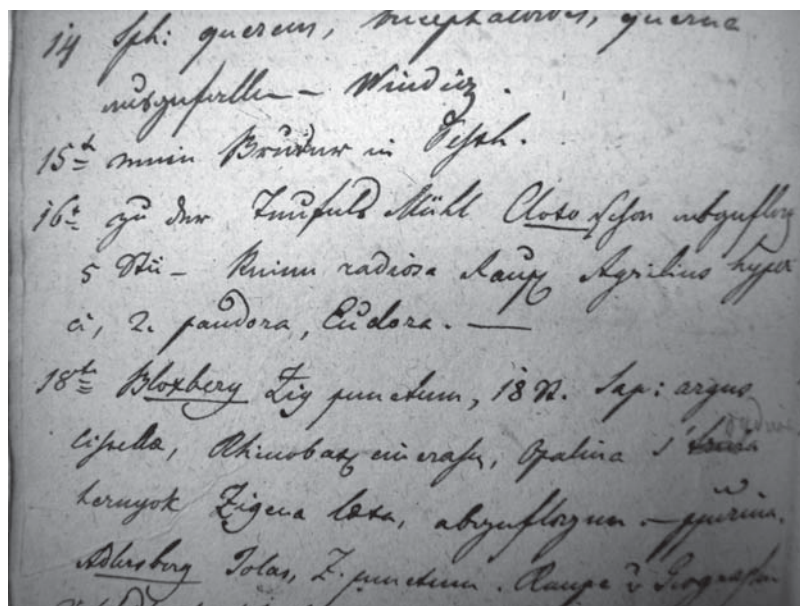 14 Sph: quercus, bucephaloides, querna
ausgefallen – Windig.
15t mein Bruder in Pesth.
16t zu der Teufels Mühl Cloto schon abgeflog
5 Stü – Keine radiosa Raup Agrilius hyperi
ci, 2. pandora, Eudora. —
18t Bloxberg Zig punctum, 18 St. Sap: argus
Rhinobat Opalina
Zigena læta, abgeflogen –
Adlersberg Jolas, Z. punctum. Raupe v